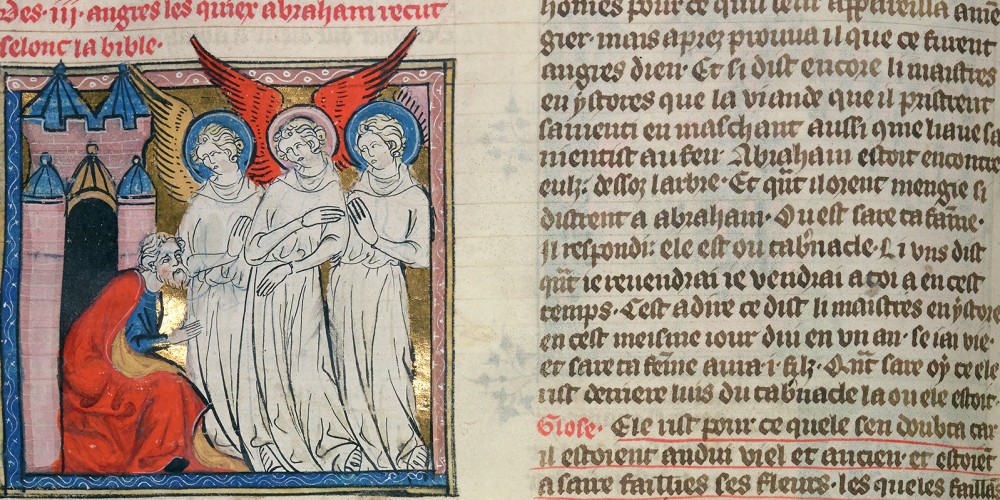 des .iii. angres les quiex abraham recut
selonc la bible.
homes pour ce quil leur appareilla a men
gier. mais apres prouua il que ce furent
angres dieu. Et si dist encore li maistres
en ystores que la viande que il pristrent
fu en maschant aussi
au feu. Abraham estoit encontre
eulz. desoz larbre. Et qũt il orent mengie si
distrent a abraham. Ou est sare ta fame.
Il respondi. ele est ou tabnacle. Li vns dist
qũt ie reuendrai ie vendrai a toi a en cest
temps. Cest a dire ce dist li maistres en ystore
en cest meisme iour dui en vn an. se iai vie.
et sare ta feme aura .i. filz. Qñt sare oy ce ele
rist derriere luis du tabnacle la ou ele estoit.
Glose. Ele rist pour ce quele sen doubta car
il estoient andui viel et ancien. et estoiet
a sare faillies ses fleurs. les queles faill